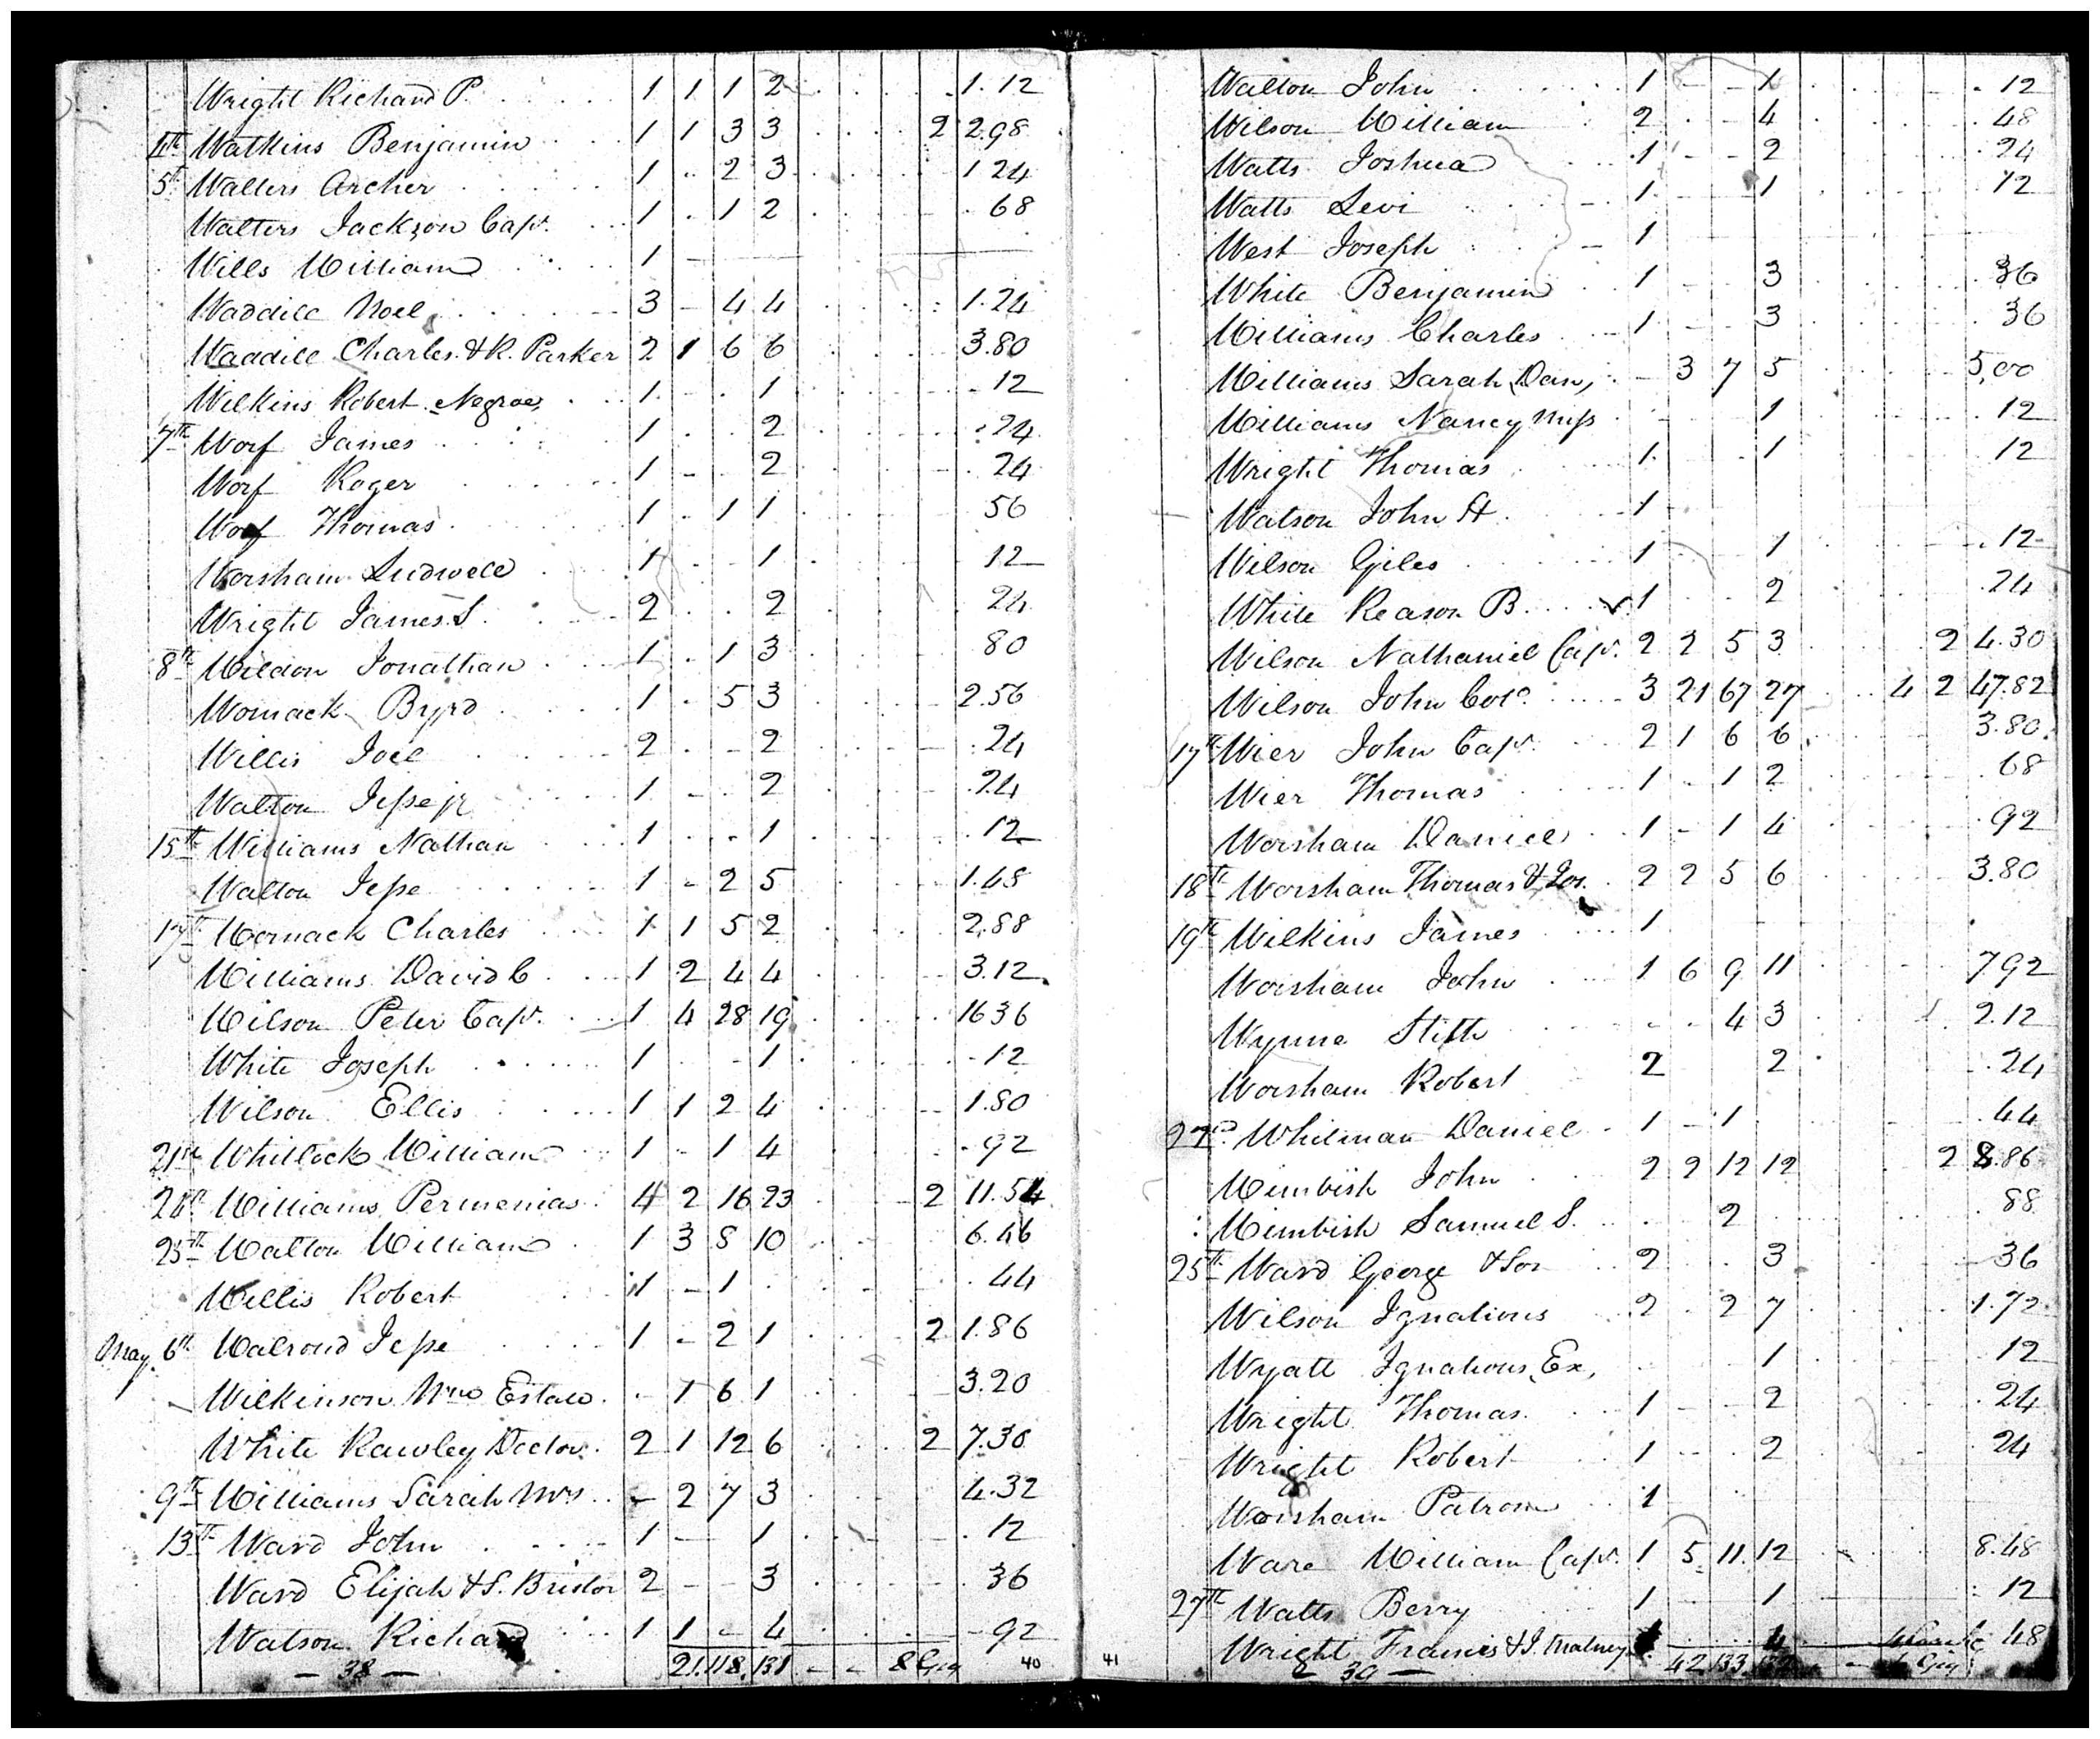 Wright Richard P. 1 1 1 2 1.12
4th Watkins Benjamin 1 1 3 3 2 2.98
5th Walters Archer 1 2 3 1 24
Walters Jackson Capt. 1 1 2 68
Wills William 1
Waddill Noel 3 4 4 1.24
Waddill Charles & R. Parker 2 1 6 6 3.80
Wilkins Robert Negroe 1 1 12
7th Worf James 1 2 24
Worf Roger 1 2 24
Worf Thomas 1 1 1 56
Worsham Ludwell 1 1 12
Wright James S. 2 2 24
8th Weldon Jonathan 1 1 3 80
Womack Byrd 1 5 3 2.56
Willis Joel 2 2 24
Walton Jesse jr 1 2 24
15th Williams Nathan 1 1 12
Walton Jesse 1 2 5 1.48
17th Womack Charles 1 1 5 2 2.88
Williams David C 1 2 4 4 3.12
Wilson Peter Capt. 1 4 28 19 16 36
White Joseph 1 1 12
Wilson Ellis 1 1 2 4 1.80
21st Whitlock William 1 1 4 92
24th Williams Permenias 4 2 16 23 2 11.54
25th Walton William 1 3 8 10 6.46
Willis Robert 1 1 44
May 6th Walrond Jesse 1 2 1 2 1.86
Wilkinson Wm Estate 1 6 1 3.20
White Rawley Doctor 2 1 12 6 2 7.30
9th Williams Sarah Mrs 2 7 3 4.32
13th Ward John 1 1 12
Ward Elijah & S. Bristor 2 3 36
Watson Richard 1 1 4 92
38 21 118 131 8 Gig 40
Walton John 1 1 12
Wilson William 2 4 48
Watts Joshua 1 2 24
Watts Levi 1 1 12
West Joseph 1
White Benjamin 1 3 36
Williams Charles 1 3 36
Williams Sarah (Dan) 3 7 5 5.00
Williams Nancy Miss 1 12
Wright Thomas 1 1 12
Watson John H. 1
Wilson Giles 1 1 12
White Reason B. 1 2 24
Wilson Nathaniel Capt. 2 2 5 3 2 4.30
Wilson John Colo. 3 21 67 27 4 2 47.82
17th Wier John Capt. 2 1 6 6 3.80
Wier Thomas 1 1 2 68
Worsham Daniel 1 1 4 92
18th Worsham Thomas & Jos. 2 2 5 6 3.80
19th Wilkins James 1
Worsham John 1 6 9 11 7 92
Wynne Stith 4 3 2.12
Worsham Robert 2 2 24
22d Whitman Daniel 1 1 44
Wimbish John 2 2 12 12 2 8.86
Wimbish Samuel S. 2 88
25th Ward George & Son 2 3 36
Wilson Ignatious 2 2 7 1.72
Wyatt Ignatious, Ex, 1 12
Wright Thomas 1 2 24
Wright Robert 1 2 24
Worsham Patrom 1
Ware William Capt. 1 5 11 12 8.48
27th Watts Berry 1 1 12
Wright Francis & J. Matney 4 48
41 30 42 133 Gig